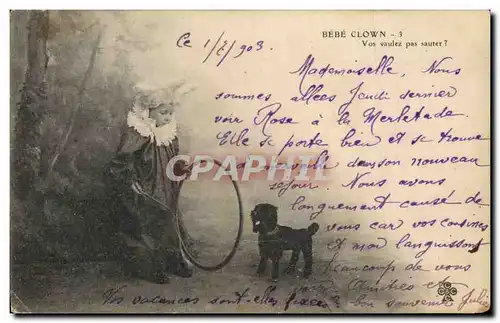 BÉBÉ CLOWN - 3
Vos vaulez pas sauter ?
Ce 1/2/903.
Mademoiselle, Nous
sommes allées Jeudi dernier
voir Rose à la Merletade.
Elle se porte bien et se trouve
dans son nouveau
séjour. Nous avons
longuement causé de
vous car vos cousines
et moi languissont
beaucoup de vous
Amitiés et
bon souvenir Julie
Vos vacances sont-elles fixées
CARTES-PRECIEUSE